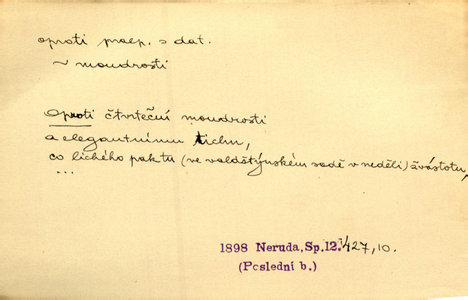 oproti praep. s dat.
~ moudrosti
Oproti čtvrteční moudrosti
a elegantnímu tichu,
co lichého paktu (ve valdštýnském sadě v neděli) žvástotu,
...
1898 Neruda, Sp. 12. 1/427, 10.
(Poslední b.)